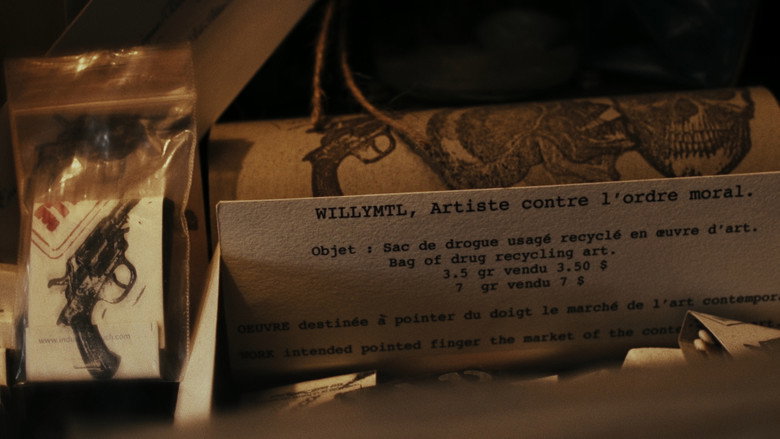 WILLYMTL, Artiste contre l'ordre moral.
Objet : Sac de drogue usagé recyclé en œuvre d'art.
Bag of drug recycling art.
3.5 gr vendu 3.50 $
7 gr vendu 7 $
OEUVRE destinée à pointer du doigt le marché de l'art contempor
WORK intended pointed finger the market of the conte